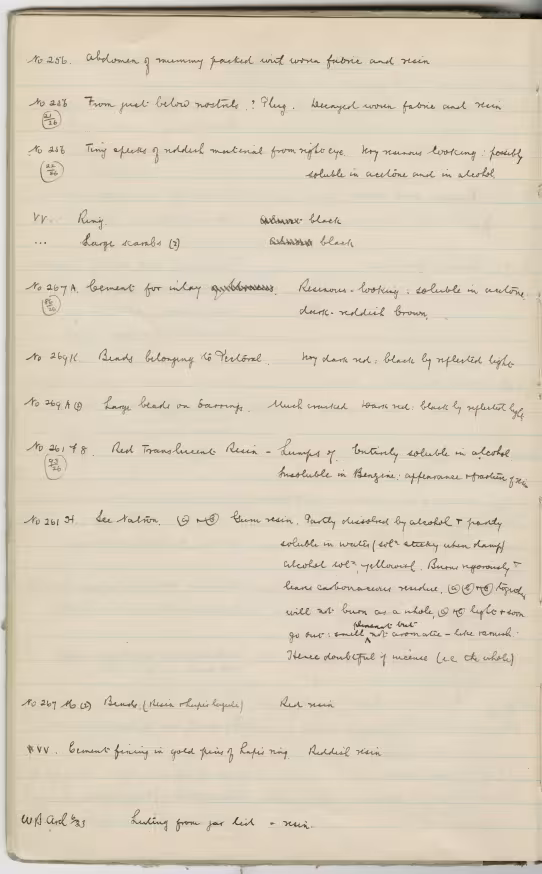 No 256. Abdomen of mummy packed with woven fabric and resin
No 256 From just below nostrils. ? Plug. Decayed woven fabric and resin
No 256 Tiny specks of reddish material from right eye. Very resinous looking: possibly
soluble in acetone and in alcohol
VV. Ring. black
... Large scarabs (2) black
No 267 A. Cement for inlay Resinous-looking: soluble in acetone.
dark-reddish brown.
No 269 K. Beads belonging to Pectoral. Very dark red: black by reflected light
No 269 A Large beads on Earrings. Much cracked Dark red: black by reflected light
No 261 Red Translucent Resin - Lumps of. Entirely soluble in alcohol
Insoluble in Benzine: appearance + fracture of resin
No 261 See Natron. Gum resin. Partly dissolved by alcohol + partly
soluble in water (solⁿ sticky when damp)
alcohol solⁿ yellowish. Burns vigorously +
leaves carbonaceous residue.
will not burn as a whole, light + soon
pleasant but
go out: smell not aromatic - like varnish.
Hence doubtful if incense (i.e. the whole)
No 267 Beads (Resin + Lapis lazuli) Red resin
VV. Cement fixing in gold piece of Lapis ring. Reddish resin
Luting from jar lid - resin.